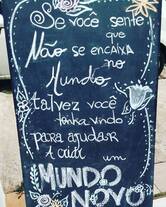 Se você sente
que
Não se encaixa
no
Mundo
talvez você
tenha vindo
para ajudar
A criar
um
MUNDO
NOVO